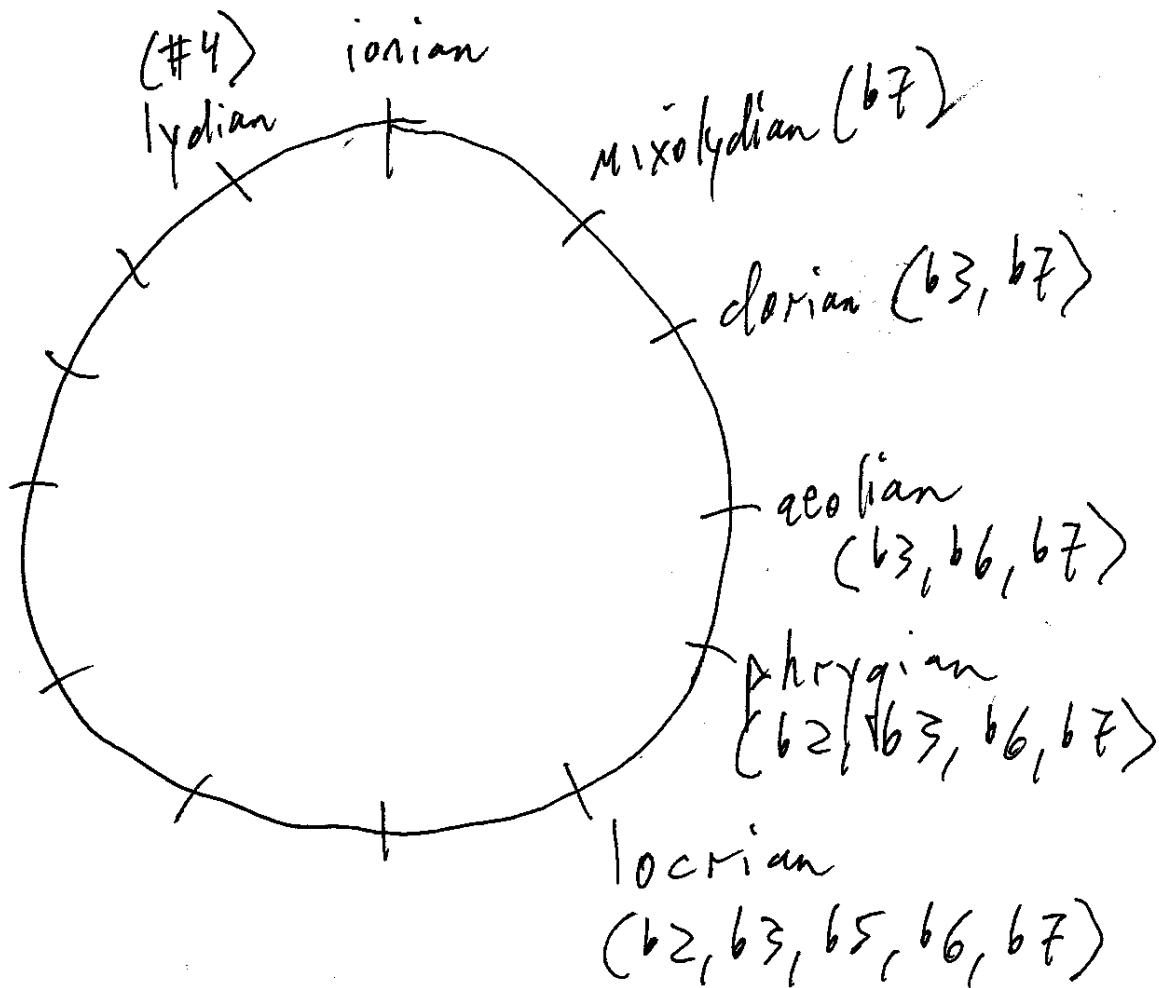 (#4) ionian
lydian
mixolydian (b7)
dorian (b3, b7)
aeolian
(b3, b6, b7)
phrygian
(b2, b3, b6, b7)
locrian
(b2, b3, b5, b6, b7)